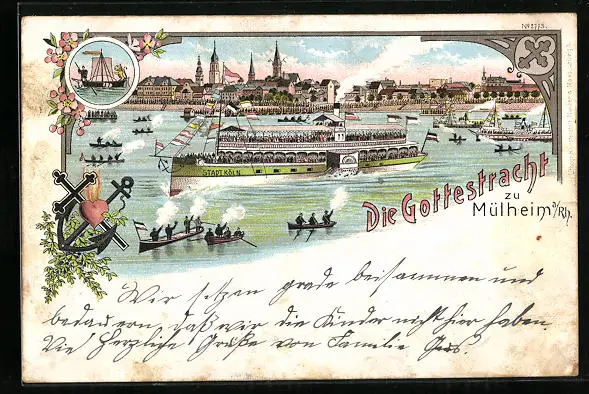 No 2773.
STADT KÖLN
Die Gottestracht
zu
Mülheim a/Rh.
Wir sitzen grade beisammen und
bedauern daß wir die Kinder nicht hier haben.
Viele Herzliche Grüße von Familie